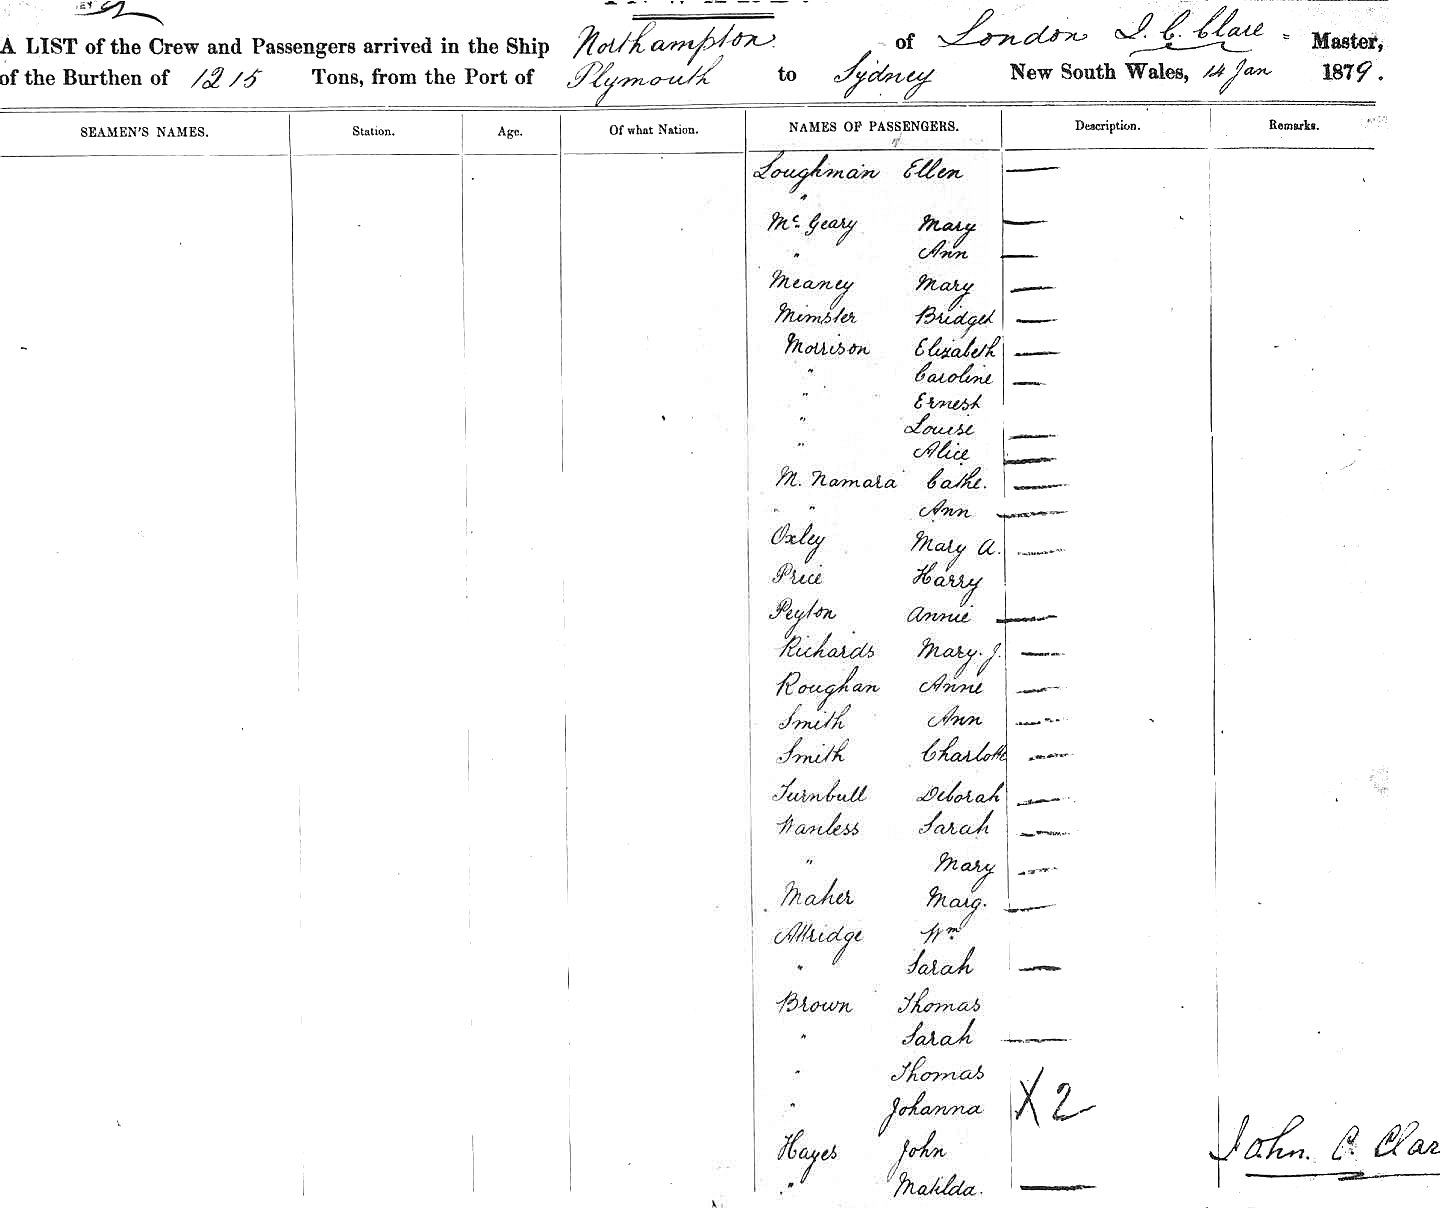 A LIST of the Crew and Passengers arrived in the Ship Northampton of London J. C. Clare Master,
of the Burthen of 1215 Tons, from the Port of Plymouth to Sydney New South Wales, 14 Jan 1879.
SEAMEN'S NAMES. Station. Age. Of what Nation. NAMES OF PASSENGERS. Description. Remarks.
Loughman Ellen —
"
Mc. Geary Mary —
" Ann —
Meaney Mary —
Mimster Bridget —
Morrison Elizabeth —
" Caroline —
" Ernest
" Louise —
" Alice —
M. Namara Cathe. —
" " Ann —
Oxley Mary A. —
Price Harry
Peyton Annie —
Richards Mary. J. —
Roughan Anne —
Smith Ann —
Smith Charlotte —
Turnbull Deborah —
Wanless Sarah —
" Mary —
Maher Marg. —
Attridge Wm
" Sarah —
Brown Thomas
" Sarah —
" Thomas
" Johanna X 2
Hayes John John. C. Clar
" Matilda. —